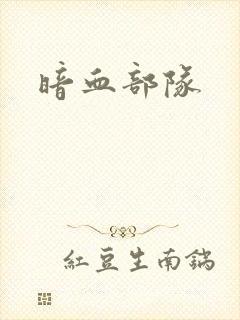 暗血部隊
紅豆生南鍋